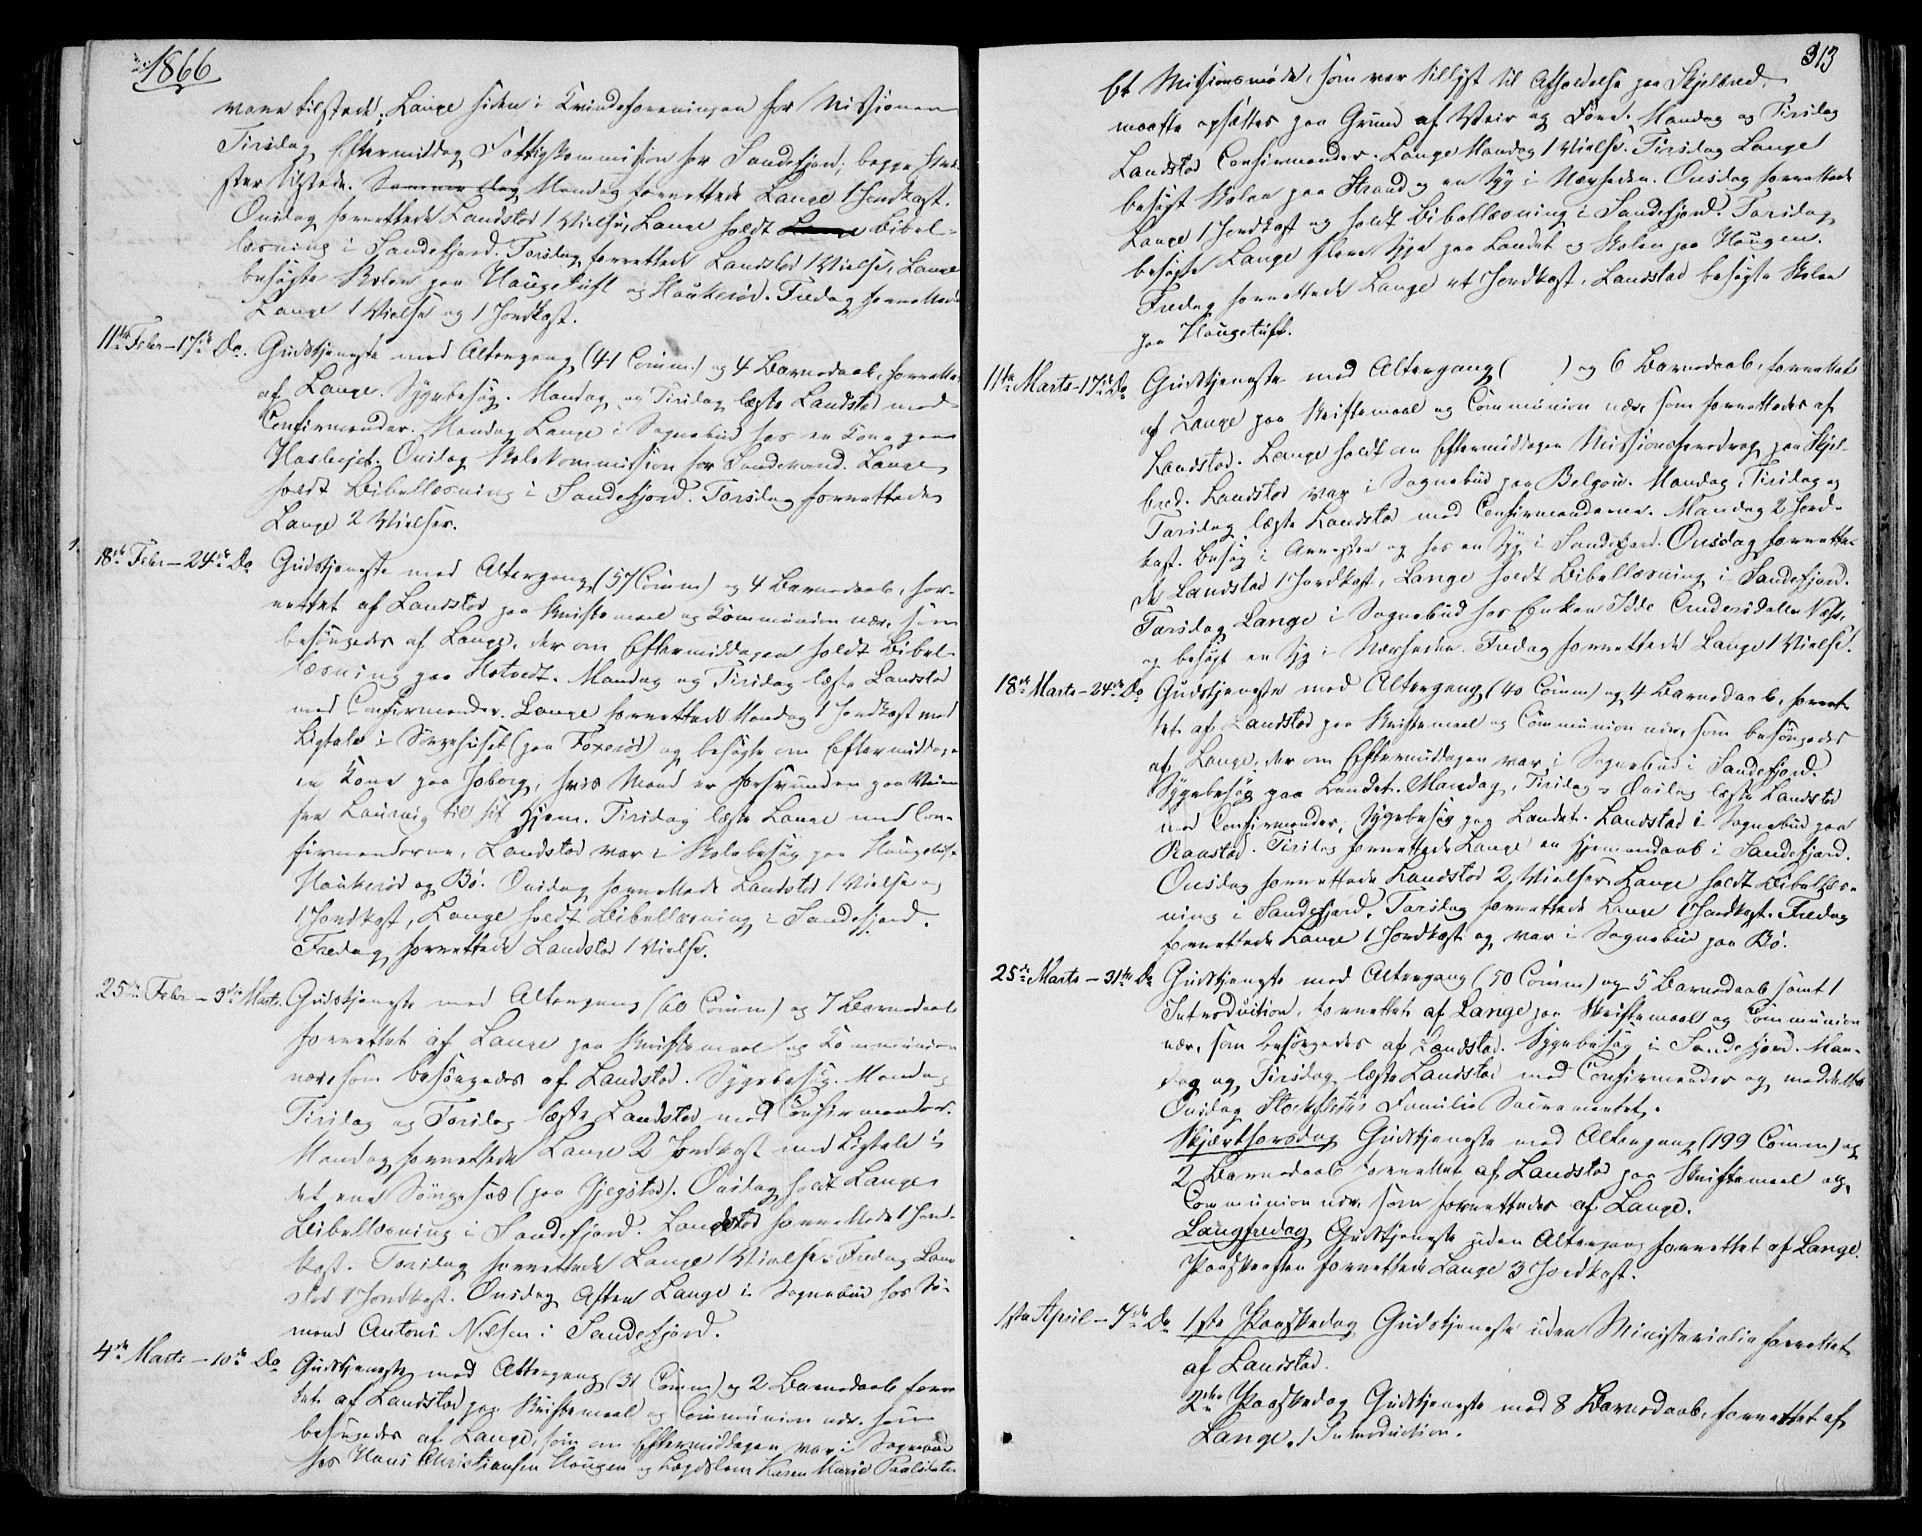 1866
vare tilstede; Lange siden i Kvindeforeningen for Missionen
Tirsdag Eftermiddag Fattigkommission for Sandefjord; begge Præ-
ster tilstede. Samme Dag Mandag forrettede Lange 1 Jordkast.
Onsdag forrettede Landstad 1 Vielse, Lange holdt Lange Bibel-
læsning i Sandefjord. Torsdag forrettede Landstad 1 Vielse, Lange
besøgte Skolen paa Haugetuft og Haukerød. Fredag forrettede
Lange 1 Vielse og 1 Jordkast.
11te Febr – 17de Do. Gudstjeneste med Altergang (41 Comm.) og 4 Barnedaab, forrettet
af Lange. Sygebesøg. Mandag og Tirsdag læste Landstad med
Confirmander. Mandag Lange i Sognebud hos en Kone paa
Haslejet. Onsdag Skolekommission for Sandeherred. Lange
holdt Bibellæsning i Sandefjord. Torsdag forrettede
Lange 2 Vielser.
18de Febr – 24de Do Gudstjeneste med Altergang (57 Comm) og 4 Barnedaab, for-
rettet af Landstad paa Skriftemaal og Kommunion nær, som
besørgedes af Lange, der om Eftermiddagen holdt Bibel-
læsning paa Hotvedt. Mandag og Tirsdag læste Landstad
med Confirmander. Lange forrettede Mandag 1 Jordkast med
Ligtale i Sørgehuset (paa Foxerød) og besøgte om Eftermiddagen
en Kone paa Joberg, hvis Mand er forsvunden paa Veien
fra Laurvig til sit Hjem. Tirsdag læste Lange med Con-
firmanderne, Landstad var i Skolebesøg paa Haugetuft
Haukerød og Bø. Onsdag forrettede Landstad 1 Vielse og
1 Jordkast, Lange holdt Bibellæsning i Sandefjord.
Fredag forrettede Landstad 1 Vielse.
25de Febr – 3die Marts. Gudstjeneste med Altergang (60 Comm) og 7 Barnedaab
forrettet af Lange paa Skriftemaal og Kommunion
nær, som besørgedes af Landstad. Sygebesøg. Mandag
Tirsdag og Torsdag læste Landstad med Confirmander.
Mandag forrettede Lange 2 Jordkast med Ligtale i
det ene Sørgehus (paa Gjegstad). Onsdag holdt Lange
Bibellæsning i Sandefjord. Landstad forrettede 1 Jord-
kast. Torsdag forrettede Lange 1 Vielse. Fredag Land
stad 1 Jordkast. Onsdag Aften Lange i Sognebud hos Sø-
mand Antoni Nilsen i Sandefjord.
4de Marts – 10de Do Gudstjeneste med Altergang (31 Comm) og 2 Barnedaab forret
tet af Landstad paa Skriftemaal og Communion nær, som
besørgedes af Lange, som om Eftermiddagen var i Sognebud
hos Hans Christiansen Haugen og Lægdslem Karen Marie Paalsdatter
313
Et Missionsmøde, som var tillyst til Afholdelse paa Skjelbred
maatte opsættes paa Grund af Veir og Føre. Mandag og Tirsdag
Landstad Confirmander. Lange Mandag 1 Vielse. Tirsdag Lange
besøgt Skolen paa Strand og en Syg i Nærheden. Onsdag forrettede
Lange 1 Jordkast og holdt Bibellæsning i Sandefjord. Torsdag
besøgte Lange flere Syge paa Landet og Skolen paa Haugen.
Fredag forrettede Lange et Jordkast, Landstad besøgte Skolen
paa Haugetuft.
11te Marts – 17de Do Gudstjeneste med Altergang ( ) og 6 Barnedaab, forrettet
af Lange paa Skriftemaal og Communion nær, som forrettedes af
Landstad. Lange holdt om Eftermiddagen Missionsforedrag paa Skjel-
bred. Landstad var i Sognebud paa Belgou. Mandag, Tirsdag og
Torsdag læste Landstad med Confirmanderne. Mandag 2 Jord-
kast. Besøg i Arresten og hos en Syg i Sandefjord. Onsdag forrette-
de Landstad 1 Jordkast, Lange holdt Bibellæsning i Sandefjord.
Torsdag Lange i Sognebud hos Enken Idde Andersdatter Næss,
og besøgt en Syg i Nærheden. Fredag forrettede Lange 1 Vielse.
18de Marts – 24de Do Gudstjeneste med Altergang (40 Comm) og 4 Barnedaab, forret-
tet af Landstad paa Skriftemaal og Communion nær, som besørgedes
af Lange, der om Eftermiddagen var i Sognebud i Sandefjord.
Sygebesøg paa Landet. Mandag, Tirsdag og Onsdag læste Landstad
med Confirmander, Sygebesøg paa Landet. Landstad i Sognebud paa
Raastad. Tirsdag forrettede Lange en Hjemmedaab i Sandefjord.
Onsdag forrettede Landstad 2 Vielser. Lange holdt Bibellæs-
ning i Sandefjord. Torsdag forrettede Lange 1 Jordkast. Fredag
forrettede Lange 1 Jordkast og var i Sognebud paa Bø.
25de Marts – 31te Do Gudstjeneste med Altergang (50 Comm) og 5 Barnedaab samt 1
Introduction, forrettet af Lange paa Skriftemaal og Communion
nær, som besørgedes af Landstad. Sygebesøg i Sandefjord. Man-
dag og Tirsdag læste Landstad med Confirmander og meddelte
Onsdag Stockfleths Familie Sacramentet.
Skjærthorsdag Gudstjeneste med Altergang (199 Comm) og
2 Barnedaab forrettet af Landstad paa Skriftemaal og
Communion nær, som forrettedes af Lange.
Langfredag Gudstjeneste uden Altergang forrettet af Lange.
Paaskeaften forrettede Lange 3 Jordkast.
1ste April – 7de Do 1ste Paaskedag Gudstjeneste uden Ministerialia forrettet
af Landstad.
2den Paaskedag Gudstjeneste med 8 Barnedaab, forrettet af
Lange. 1 Introduction.